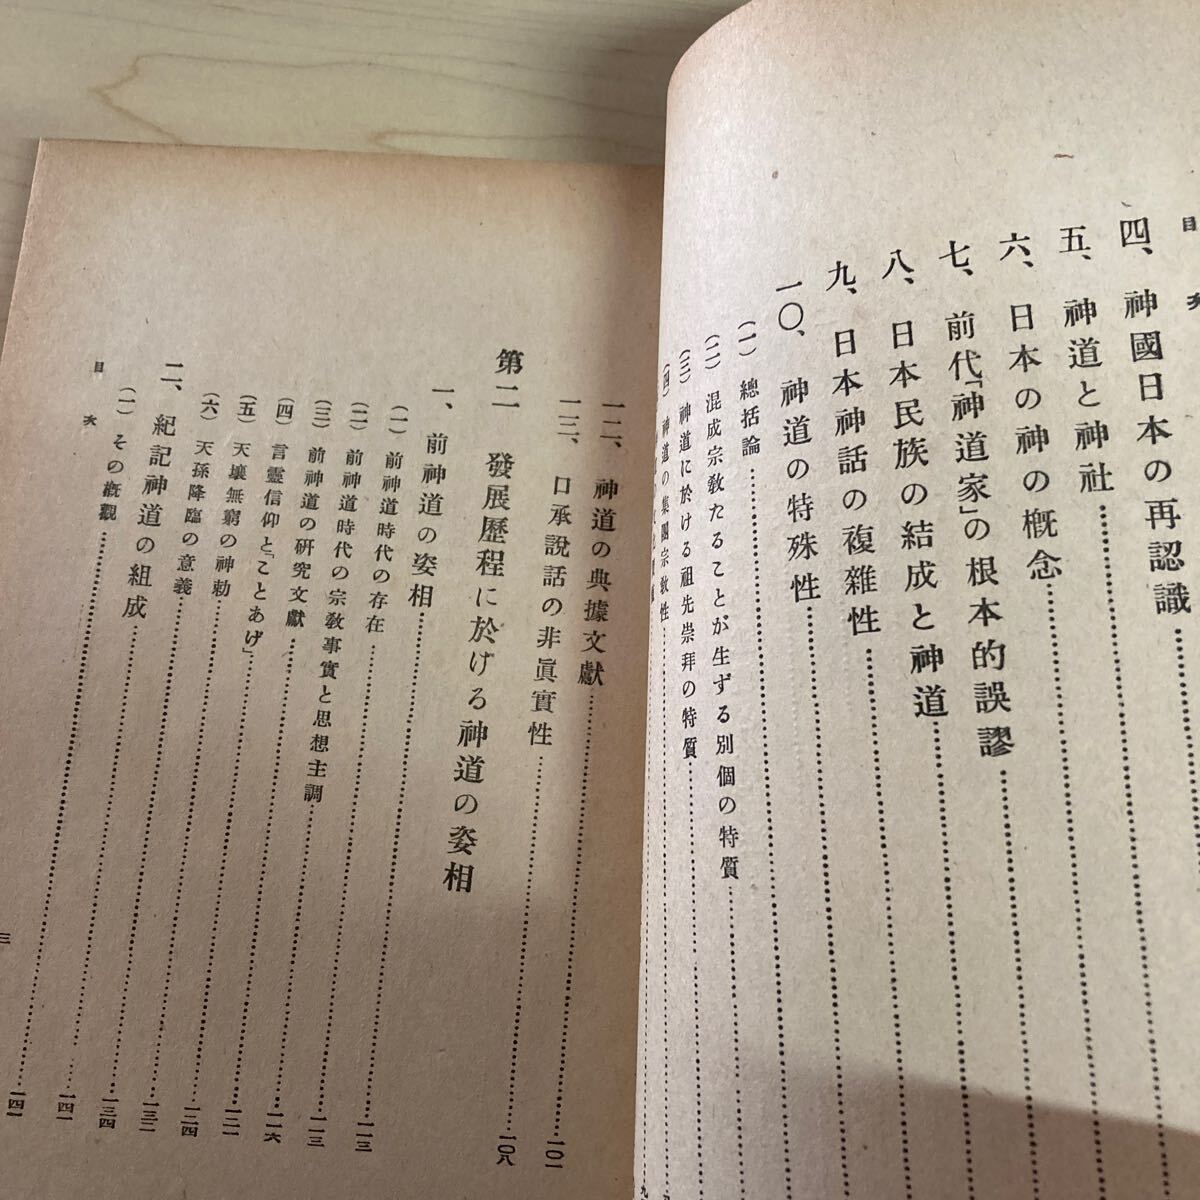 目次
四、神國日本の再認識
五、神道と神社
六、日本の神の概念
七、前代「神道家」の根本的誤謬
八、日本民族の結成と神道
九、日本神話の複雜性
一〇、神道の特殊性
(一)總括論
(二)混成宗敎たることが生ずる別個の特質
(三)神道に於ける祖先崇拜の特質
(四)神道の集團宗敎性
一二、神道の典據文獻……一〇一
一三、口承說話の非眞實性……一〇八
第二 發展歷程に於ける神道の姿相
一、前神道の姿相……一一三
(一)前神道時代の存在……一一三
(二)前神道時代の宗敎事實と思想主調……一一六
(三)前神道の硏究文獻……一二一
(四)言靈信仰と「ことあげ」……一二四
(五)天壤無窮の神勅……一三二
(六)天孫降臨の意義……一三四
二、紀記神道の組成……一四一
(一)その概觀……一四一
目次
三